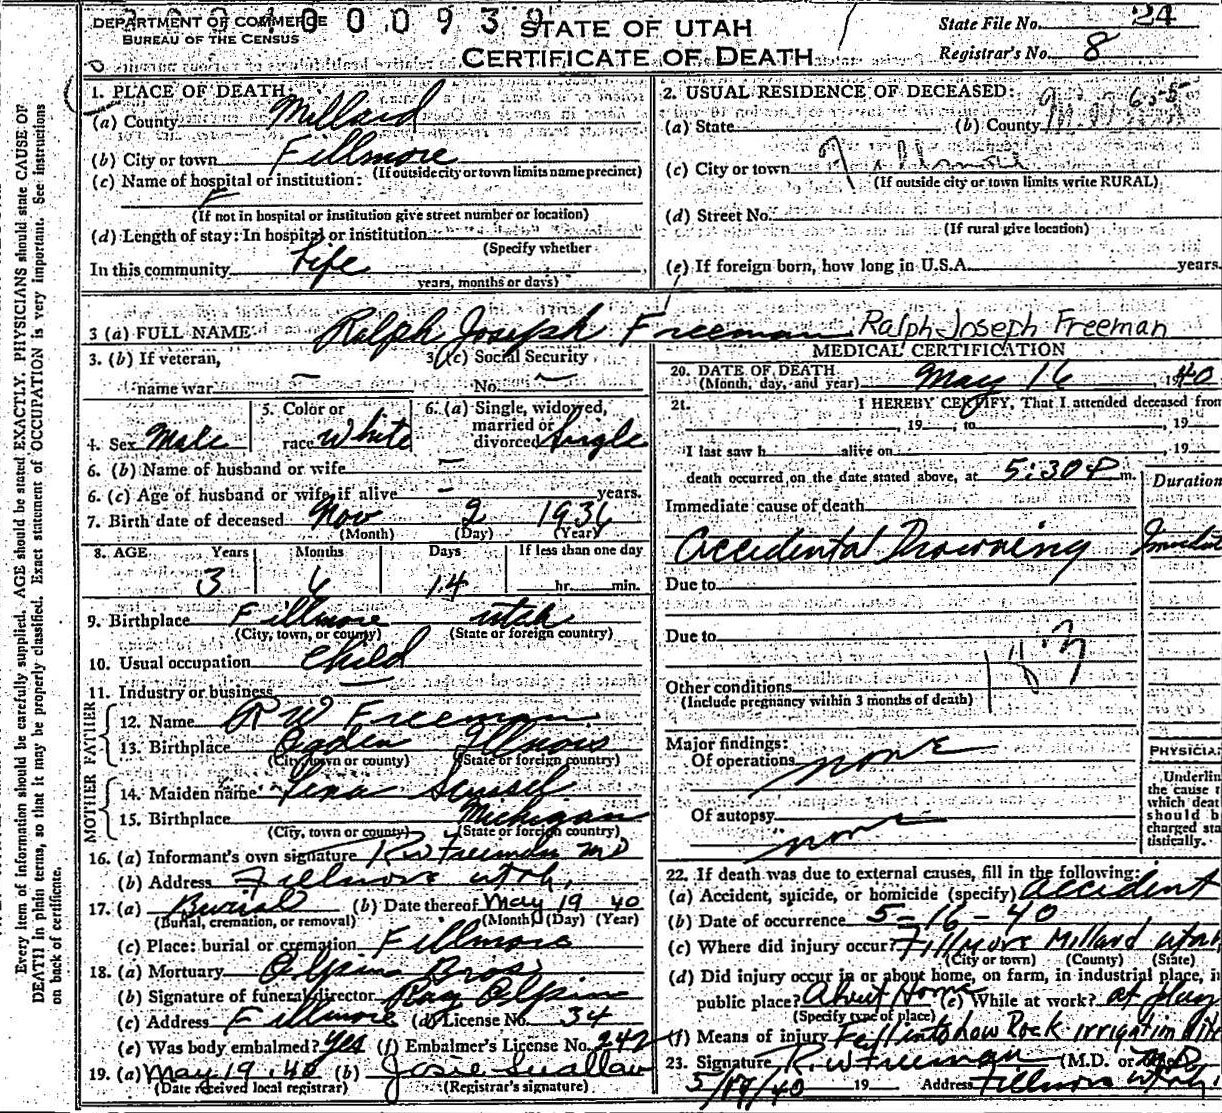 DEPARTMENT OF COMMERCE
BUREAU OF THE CENSUS
STATE OF UTAH
CERTIFICATE OF DEATH
State File No. 24
Registrar's No. 8
Every item of information should be carefully supplied. AGE should be stated EXACTLY. PHYSICIANS should state CAUSE OF
DEATH in plain terms, so that it may be properly classified. Exact statement of OCCUPATION is very important. See instructions
on back of certificate.
1. PLACE OF DEATH:
(a) County Millard
(b) City or town Fillmore
(If outside city or town limits name precinct)
(c) Name of hospital or institution:
(If not in hospital or institution give street number or location)
(d) Length of stay: In hospital or institution
(Specify whether
In this community Life
years, months or days)
2. USUAL RESIDENCE OF DECEASED:
(a) State (b) County Millard
(c) City or town Fillmore
(If outside city or town limits write RURAL)
(d) Street No.
(If rural give location)
(e) If foreign born, how long in U.S.A. years.
3 (a) FULL NAME Ralph Joseph Freeman Ralph Joseph Freeman
3. (b) If veteran,
name war —
3 (c) Social Security
No. —
4. Sex Male
5. Color or
race White
6. (a) Single, widowed,
married or
divorced Single
6. (b) Name of husband or wife —
6. (c) Age of husband or wife, if alive — years.
7. Birth date of deceased Nov 2 1936
(Month) (Day) (Year)
8. AGE Years Months Days If less than one day
3 6 14 hr. min.
9. Birthplace Fillmore Utah
(City, town, or county) (State or foreign country)
10. Usual occupation child
11. Industry or business —
FATHER
12. Name R W Freeman
13. Birthplace Ogden Illinois
(City, town or county) (State or foreign country)
MOTHER
14. Maiden name Lena
15. Birthplace Michigan
(City, town or county) (State or foreign country)
16. (a) Informant's own signature R W Freeman MD
(b) Address Fillmore Utah.
17. (a) Burial (b) Date thereof May 19 40
(Burial, cremation, or removal) (Month) (Day) (Year)
(c) Place: burial or cremation Fillmore
18. (a) Mortuary Olpin Bros.
(b) Signature of funeral director Ray Olpin
(c) Address Fillmore (d) License No. 34
(e) Was body embalmed? Yes (f) Embalmer's License No. 242
19. (a) May 19, 40 (b) Josie Swallow
(Date received local registrar) (Registrar's signature)
MEDICAL CERTIFICATION
20. DATE OF DEATH
(Month, day, and year) May 16, 1940
21. I HEREBY CERTIFY, That I attended deceased from
, 19 , to , 19
I last saw h alive on , 19
death occurred on the date stated above, at 5:30 P m.
Duration
Immediate cause of death
Accidental Drowning
Due to
Due to
183
Other conditions
(Include pregnancy within 3 months of death)
Major findings:
Of operations none
Of autopsy none
PHYSICIA
Underlin
the cause
which deat
should b
charged sta
tistically.
22. If death was due to external causes, fill in the following:
(a) Accident, suicide, or homicide (specify) accident
(b) Date of occurrence 5-16-40
(c) Where did injury occur? Fillmore Millard Utah
(City or town) (County) (State)
(d) Did injury occur in or about home, on farm, in industrial place, i
public place? About Home (e) While at work? at play
(Specify type of place)
(f) Means of injury Fell into Rock irrigation
23. Signature R. W Freeman (M.D. or
5/19/40 19 Address Fillmore Utah.